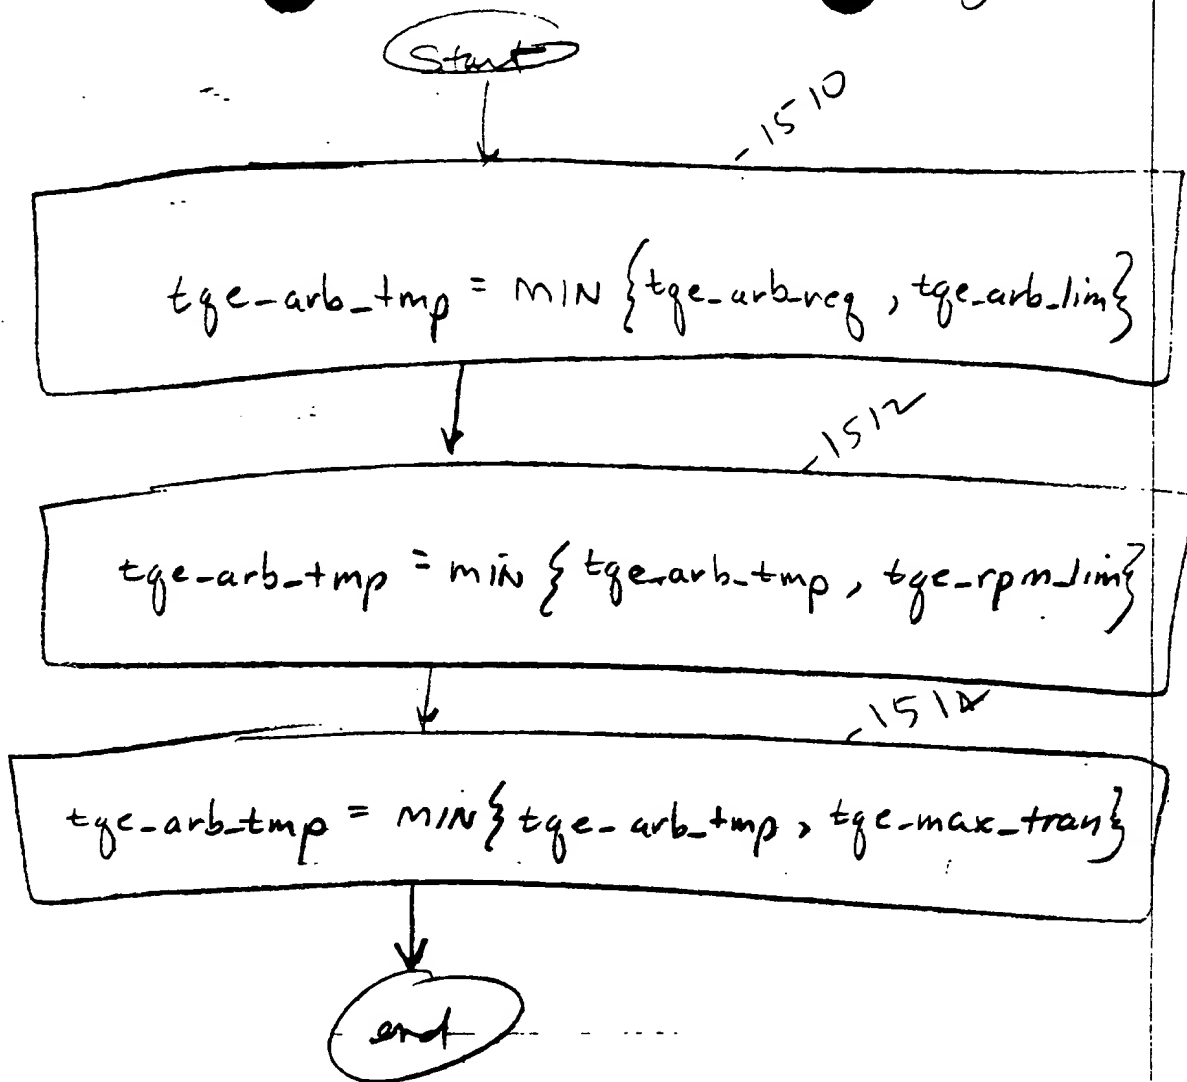 Start
1510
tqe_arb_tmp = MIN {tqe_arb_req, tqe_arb_lim}
1512
tqe_arb_tmp = min {tqe_arb_tmp, tqe_rpm_lim}
1514
tqe_arb_tmp = MIN {tqe_arb_tmp, tqe_max_tran}
end